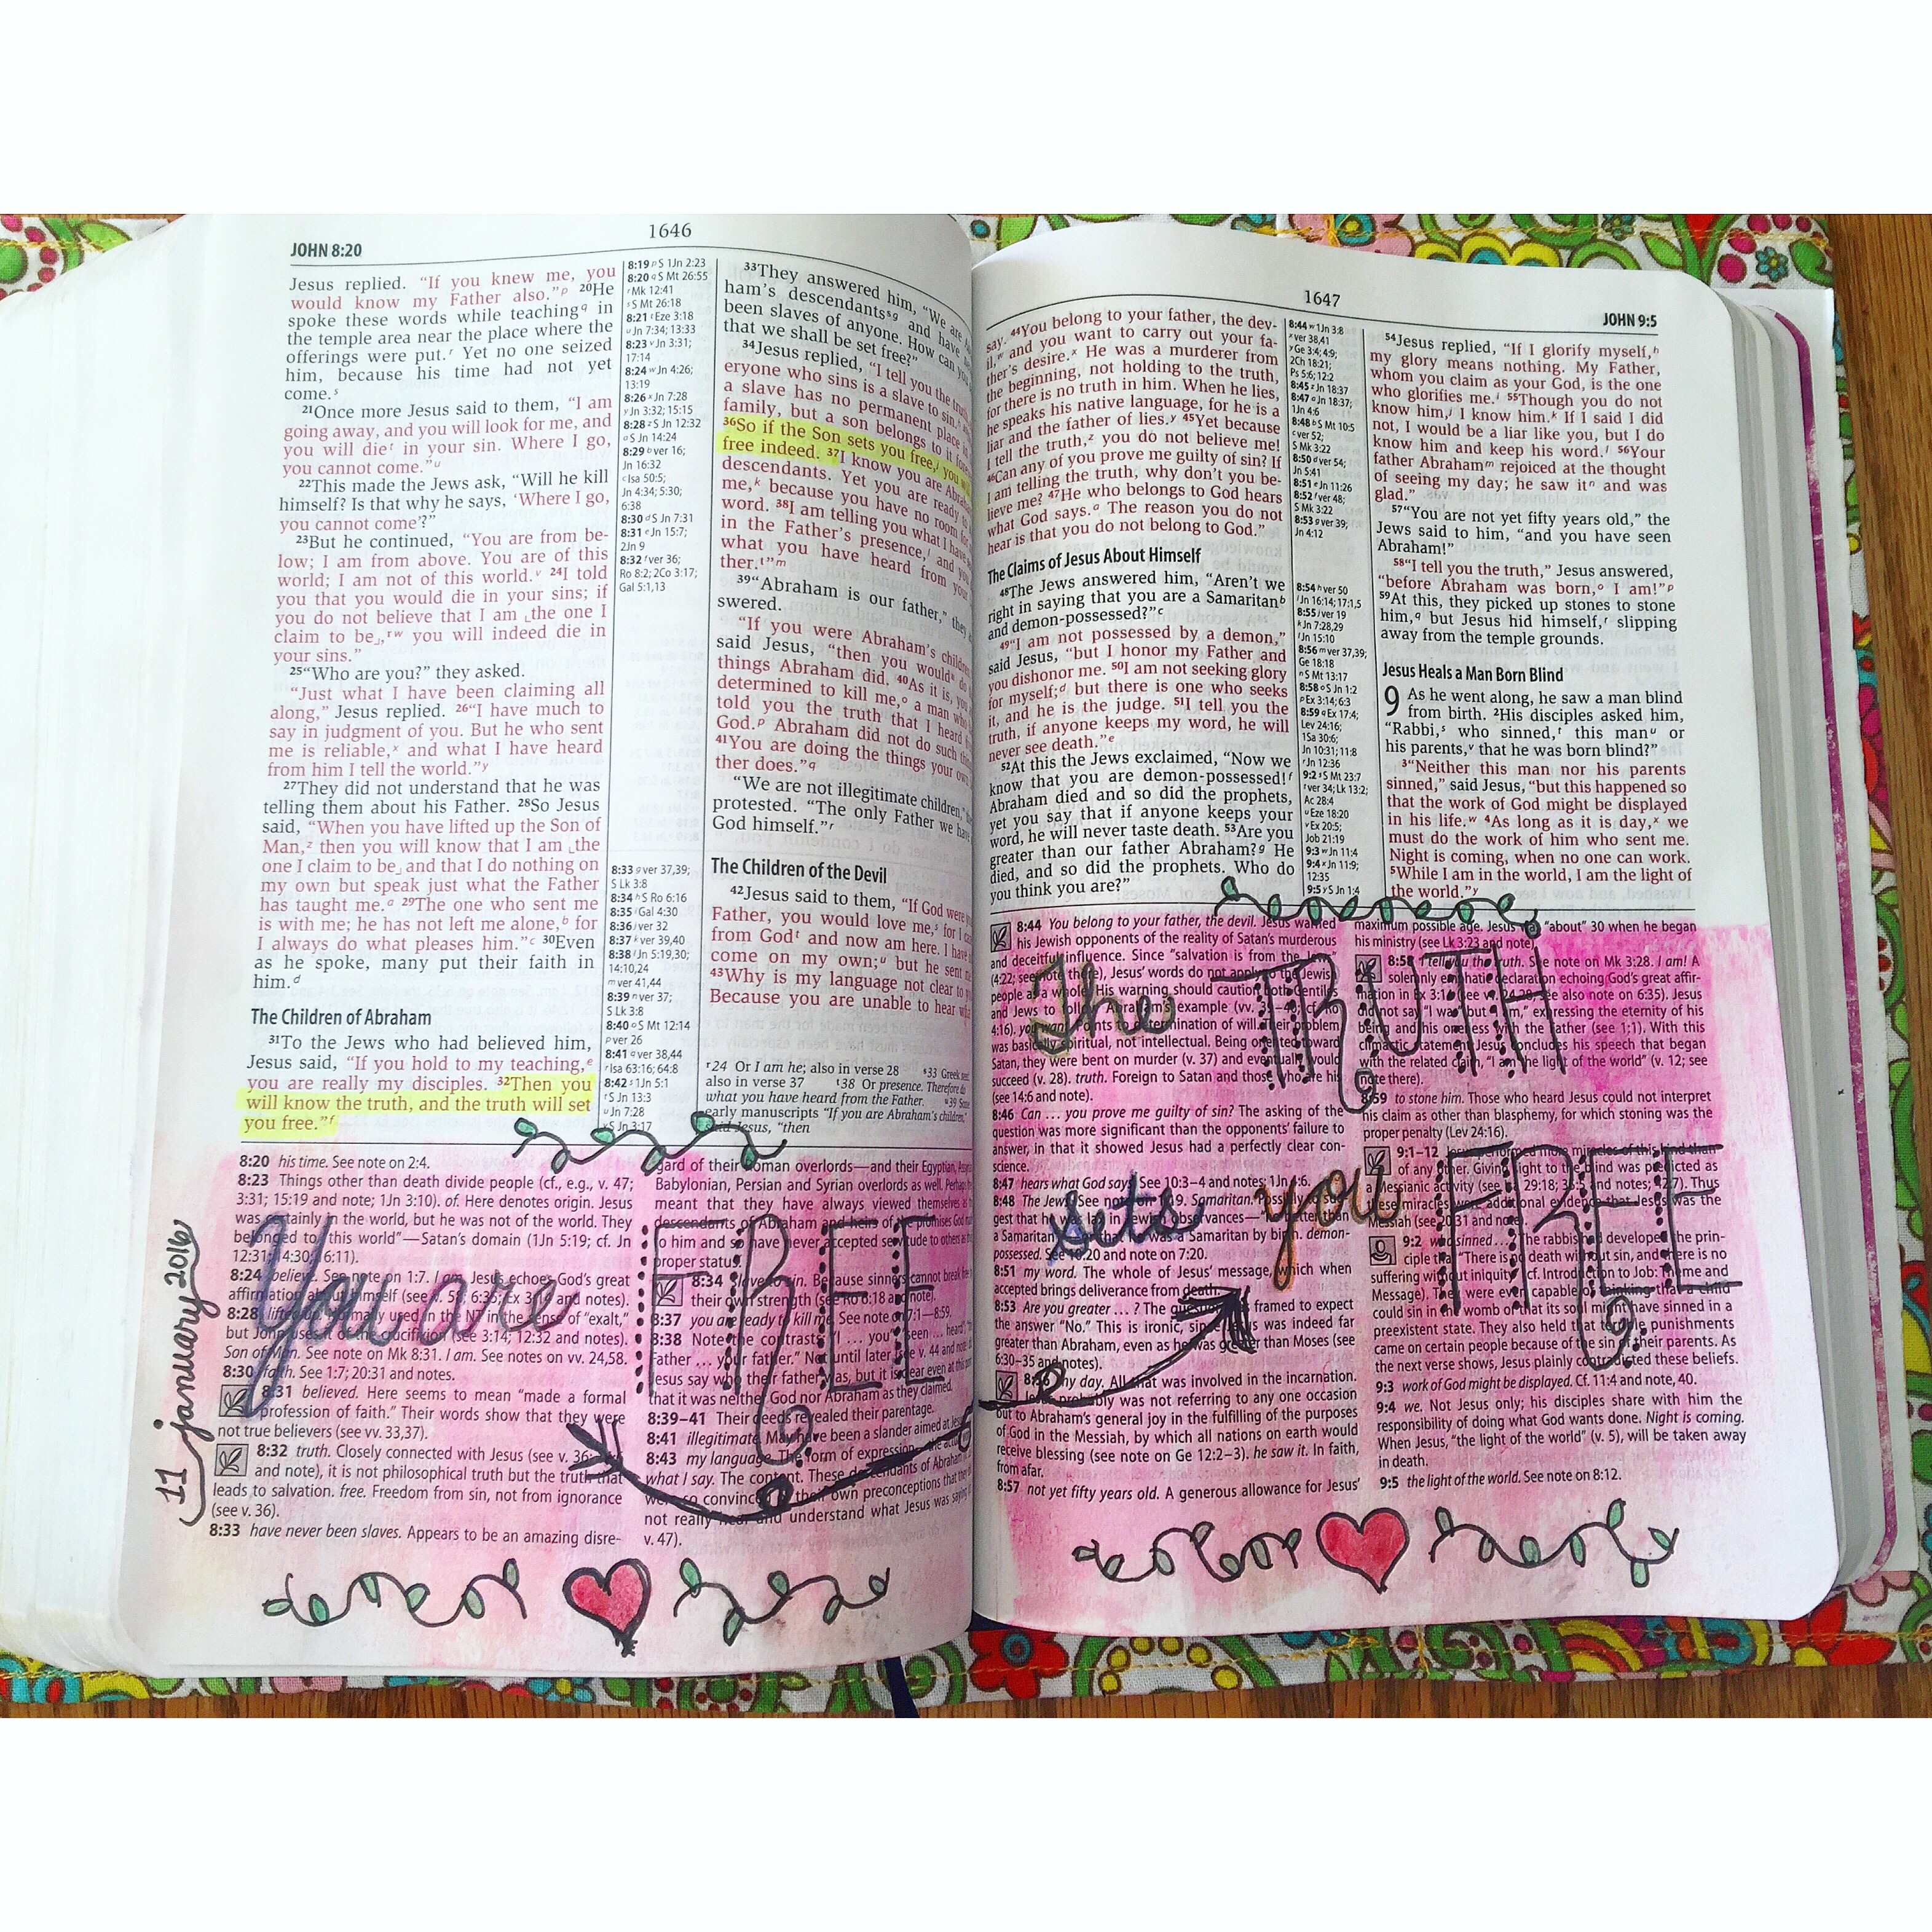 JOHN 8:20
1646
Jesus replied. “If you knew me, you
would know my Father also.”p 20He
spoke these words while teachingq in
the temple area near the place where the
offerings were put.r Yet no one seized
him, because his time had not yet
come.s
21Once more Jesus said to them, “I am
going away, and you will look for me, and
you will diet in your sin. Where I go,
you cannot come.”u
22This made the Jews ask, “Will he kill
himself? Is that why he says, ‘Where I go,
you cannot come’?”
23But he continued, “You are from be-
low; I am from above. You are of this
world; I am not of this world.v 24I told
you that you would die in your sins; if
you do not believe that I am ⌞the one I
claim to be⌟,rw you will indeed die in
your sins.”
25“Who are you?” they asked.
“Just what I have been claiming all
along,” Jesus replied. 26“I have much to
say in judgment of you. But he who sent
me is reliable,x and what I have heard
from him I tell the world.”y
27They did not understand that he was
telling them about his Father. 28So Jesus
said, “When you have lifted up the Son of
Man,z then you will know that I am ⌞the
one I claim to be⌟ and that I do nothing on
my own but speak just what the Father
has taught me.a 29The one who sent me
is with me; he has not left me alone,b for
I always do what pleases him.”c 30Even
as he spoke, many put their faith in
him.d
The Children of Abraham
31To the Jews who had believed him,
Jesus said, “If you hold to my teaching,e
you are really my disciples. 32Then you
will know the truth, and the truth will set
you free.”f
8:19 p S 1Jn 2:23
8:20 q S Mt 26:55
r Mk 12:41
s S Mt 26:18
8:21 t Eze 3:18
u Jn 7:34; 13:33
8:23 v Jn 3:31;
17:14
8:24 w Jn 4:26;
13:19
8:26 x Jn 7:28
y Jn 3:32; 15:15
8:28 z S Jn 12:32
a S Jn 14:24
8:29 b ver 16;
Jn 16:32
c Isa 50:5;
Jn 4:34; 5:30;
6:38
8:30 d S Jn 7:31
8:31 e Jn 15:7;
2Jn 9
8:32 f ver 36;
Ro 8:2; 2Co 3:17;
Gal 5:1,13
8:33 g ver 37,39;
S Lk 3:8
8:34 h S Ro 6:16
8:35 i Gal 4:30
8:36 j ver 32
8:37 k ver 39,40
8:38 l Jn 5:19,30;
14:10,24
m ver 41,44
8:39 n ver 37;
S Lk 3:8
8:40 o S Mt 12:14
p ver 26
8:41 q ver 38,44
r Isa 63:16; 64:8
8:42 s 1Jn 5:1
t S Jn 13:3
u Jn 7:28
v S Jn 3:17
33They answered him, “We are
ham’s descendantsg and have
been slaves of anyone. How can
that we shall be set free?”
34Jesus replied, “I tell you the truth,
eryone who sins is a slave to sin.
a slave has no permanent place
family, but a son belongs to it
36So if the Son sets you free,j you
free indeed. 37I know you are
descendants. Yet you are ready
me,k because you have no room
word. 38I am telling you what I have
in the Father’s presence,l and
what you have heard from your
ther.t”m
39“Abraham is our father,” they
swered.
“If you were Abraham’s children,
said Jesus, “then you would
things Abraham did. 40As it is, you
determined to kill me,o a man
told you the truth that I heard
God.p Abraham did not do such
41You are doing the things your
ther does.”q
“We are not illegitimate children,”
protested. “The only Father we have
God himself.”r
The Children of the Devil
42Jesus said to them, “If God were
Father, you would love me,s for I
from Godt and now am here. I have
come on my own;u but he sent
43Why is my language not clear to
Because you are unable to hear
r24 Or I am he; also in verse 28 s33 Greek
also in verse 37 t38 Or presence. Therefore do
what you have heard from the Father. u39
early manuscripts “If you are Abraham’s children,”
said Jesus, “then
8:20 his time. See note on 2:4.
8:23 Things other than death divide people (cf., e.g., v. 47;
3:31; 15:19 and note; 1Jn 3:10). of. Here denotes origin. Jesus
was certainly in the world, but he was not of the world. They
belonged to “this world”—Satan’s domain (1Jn 5:19; cf. Jn
12:31; 14:30; 16:11).
8:24 believe. See note on 1:7. I am. Jesus echoes God’s great
affirmation about himself (see v. 58; 6:35; Ex 3:14 and notes).
8:28 lifted up. Normally used in the NT in the sense of “exalt,”
but John uses it of the crucifixion (see 3:14; 12:32 and notes).
Son of Man. See note on Mk 8:31. I am. See notes on vv. 24,58.
8:30 faith. See 1:7; 20:31 and notes.
8:31 believed. Here seems to mean “made a formal
profession of faith.” Their words show that they were
not true believers (see vv. 33,37).
8:32 truth. Closely connected with Jesus (see v. 36;
and note), it is not philosophical truth but the truth that
leads to salvation. free. Freedom from sin, not from ignorance
(see v. 36).
8:33 have never been slaves. Appears to be an amazing disre-
gard of their Roman overlords—and their Egyptian,
Babylonian, Persian and Syrian overlords as well. Perhaps
meant that they have always viewed themselves as
descendants of Abraham and heirs of the promises God
to him and so have never accepted servitude to others as
proper status.
8:34 slave to sin. Because sinners cannot break
their own strength (see Ro 6:18 and note).
8:37 you are ready to kill me. See note on 7:1—8:59.
8:38 Note the contrasts: “I ... you”; “seen ... heard”;
Father ... your father.” Not until later (see v. 44 and note)
Jesus say who their father was, but it is clear even at this
that it was neither God nor Abraham as they claimed.
8:39–41 Their deeds revealed their parentage.
8:41 illegitimate. May have been a slander aimed at
8:43 my language. The form of expression—the actual
what I say. The content. These descendants of Abraham
were so convinced their own preconceptions that they
not really hear and understand what Jesus was saying
v. 47).
You are FREE
11 january 2016
1647
JOHN 9:5
say. 44You belong to your father, the dev-
il,w and you want to carry out your fa-
ther’s desire.x He was a murderer from
the beginning, not holding to the truth,
for there is no truth in him. When he lies,
he speaks his native language, for he is a
liar and the father of lies.y 45Yet because
I tell the truth,z you do not believe me!
46Can any of you prove me guilty of sin? If
I am telling the truth, why don’t you be-
lieve me? 47He who belongs to God hears
what God says.a The reason you do not
hear is that you do not belong to God.”
The Claims of Jesus About Himself
48The Jews answered him, “Aren’t we
right in saying that you are a Samaritanb
and demon-possessed?”c
49“I am not possessed by a demon,”
said Jesus, “but I honor my Father and
you dishonor me. 50I am not seeking glory
for myself;d but there is one who seeks
it, and he is the judge. 51I tell you the
truth, if anyone keeps my word, he will
never see death.”e
52At this the Jews exclaimed, “Now we
know that you are demon-possessed!f
Abraham died and so did the prophets,
yet you say that if anyone keeps your
word, he will never taste death. 53Are you
greater than our father Abraham?g He
died, and so did the prophets. Who do
you think you are?”
8:44 w 1Jn 3:8
x ver 38,41
y Ge 3:4; 4:9;
2Ch 18:21;
Ps 5:6; 12:2
8:45 z Jn 18:37
8:47 a Jn 18:37;
1Jn 4:6
8:48 b S Mt 10:5
c ver 52;
S Mk 3:22
8:50 d ver 54;
Jn 5:41
8:51 e Jn 11:26
8:52 f ver 48;
S Mk 3:22
8:53 g ver 39;
Jn 4:12
8:54 h ver 50
i Jn 16:14; 17:1,5
8:55 j ver 19
k Jn 7:28,29
l Jn 15:10
8:56 m ver 37,39;
Ge 18:18
n S Mt 13:17
8:58 o S Jn 1:2
p Ex 3:14; 6:3
8:59 q Ex 17:4;
Lev 24:16;
1Sa 30:6;
Jn 10:31; 11:8
r Jn 12:36
9:2 s S Mt 23:7
t ver 34; Lk 13:2;
Ac 28:4
u Eze 18:20
v Ex 20:5;
Job 21:19
9:3 w Jn 11:4
9:4 x Jn 11:9;
12:35
9:5 y S Jn 1:4
54Jesus replied, “If I glorify myself,h
my glory means nothing. My Father,
whom you claim as your God, is the one
who glorifies me.i 55Though you do not
know him,j I know him.k If I said I did
not, I would be a liar like you, but I do
know him and keep his word.l 56Your
father Abrahamm rejoiced at the thought
of seeing my day; he saw itn and was
glad.”
57“You are not yet fifty years old,” the
Jews said to him, “and you have seen
Abraham!”
58“I tell you the truth,” Jesus answered,
“before Abraham was born,o I am!”p
59At this, they picked up stones to stone
him,q but Jesus hid himself,r slipping
away from the temple grounds.
Jesus Heals a Man Born Blind
9 As he went along, he saw a man blind
from birth. 2His disciples asked him,
“Rabbi,s who sinned,t this manu or
his parents,v that he was born blind?”
3“Neither this man nor his parents
sinned,” said Jesus, “but this happened so
that the work of God might be displayed
in his life.w 4As long as it is day,x we
must do the work of him who sent me.
Night is coming, when no one can work.
5While I am in the world, I am the light of
the world.”y
8:44 You belong to your father, the devil. Jesus warned
his Jewish opponents of the reality of Satan’s murderous
and deceitful influence. Since “salvation is from the Jews”
(4:22; see note there), Jesus’ words do not apply to the Jewish
people as a whole. His warning should caution both Gentiles
and Jews to follow Abraham’s example (vv. 39–40; cf.
4:16). you want. Points to determination of will. Their problem
was basically spiritual, not intellectual. Being oriented toward
Satan, they were bent on murder (v. 37) and eventually would
succeed (v. 28). truth. Foreign to Satan and those who are his
(see 14:6 and note).
8:46 Can ... you prove me guilty of sin? The asking of the
question was more significant than the opponents’ failure to
answer, in that it showed Jesus had a perfectly clear con-
science.
8:47 hears what God says. See 10:3–4 and notes; 1Jn 4:6.
8:48 The Jews. See note on 1:19. Samaritan. Possibly to sug-
gest that he was lax in Jewish observances—“no better than
a Samaritan”—or that he was a Samaritan by birth. demon-
possessed. See 10:20 and note on 7:20.
8:51 my word. The whole of Jesus’ message, which when
accepted brings deliverance from death.
8:53 Are you greater ... ? The question is framed to expect
the answer “No.” This is ironic, since Jesus was indeed far
greater than Abraham, even as he was greater than Moses (see
6:30–35 and notes).
8:56 my day. All that was involved in the incarnation.
Jesus probably was not referring to any one occasion
but to Abraham’s general joy in the fulfilling of the purposes
of God in the Messiah, by which all nations on earth would
receive blessing (see note on Ge 12:2–3). he saw it. In faith,
from afar.
8:57 not yet fifty years old. A generous allowance for Jesus’
maximum possible age. Jesus “about” 30 when he began
his ministry (see Lk 3:23 and note).
8:58 I tell you the truth. See note on Mk 3:28. I am! A
solemnly emphatic declaration echoing God’s great affir-
mation in Ex 3:14 (see vv. 24,28; see also note on 6:35). Jesus
did not say “I was” but “I am,” expressing the eternity of his
being and his oneness with the Father (see 1:1). With this
climactic statement Jesus concludes his speech that began
with the related claim, “I am the light of the world” (v. 12; see
note there).
8:59 to stone him. Those who heard Jesus could not interpret
his claim as other than blasphemy, for which stoning was the
proper penalty (Lev 24:16).
9:1–12 Jesus performed more miracles of this kind than
of any other. Giving sight to the blind was predicted as
a Messianic activity (see Isa 29:18; 35:5 and notes; 42:7). Thus
these miracles were additional evidence that Jesus was the
Messiah (see 20:31 and note).
9:2 who sinned ... ? The rabbis had developed the prin-
ciple that “There is no death without sin, and there is no
suffering without iniquity” (cf. Introduction to Job: Theme and
Message). They were even capable of thinking that a child
could sin in the womb or that its soul might have sinned in a
preexistent state. They also held that terrible punishments
came on certain people because of the sin of their parents. As
the next verse shows, Jesus plainly contradicted these beliefs.
9:3 work of God might be displayed. Cf. 11:4 and note, 40.
9:4 we. Not Jesus only; his disciples share with him the
responsibility of doing what God wants done. Night is coming.
When Jesus, “the light of the world” (v. 5), will be taken away
in death.
9:5 the light of the world. See note on 8:12.
The TRUTH
sets you FREE